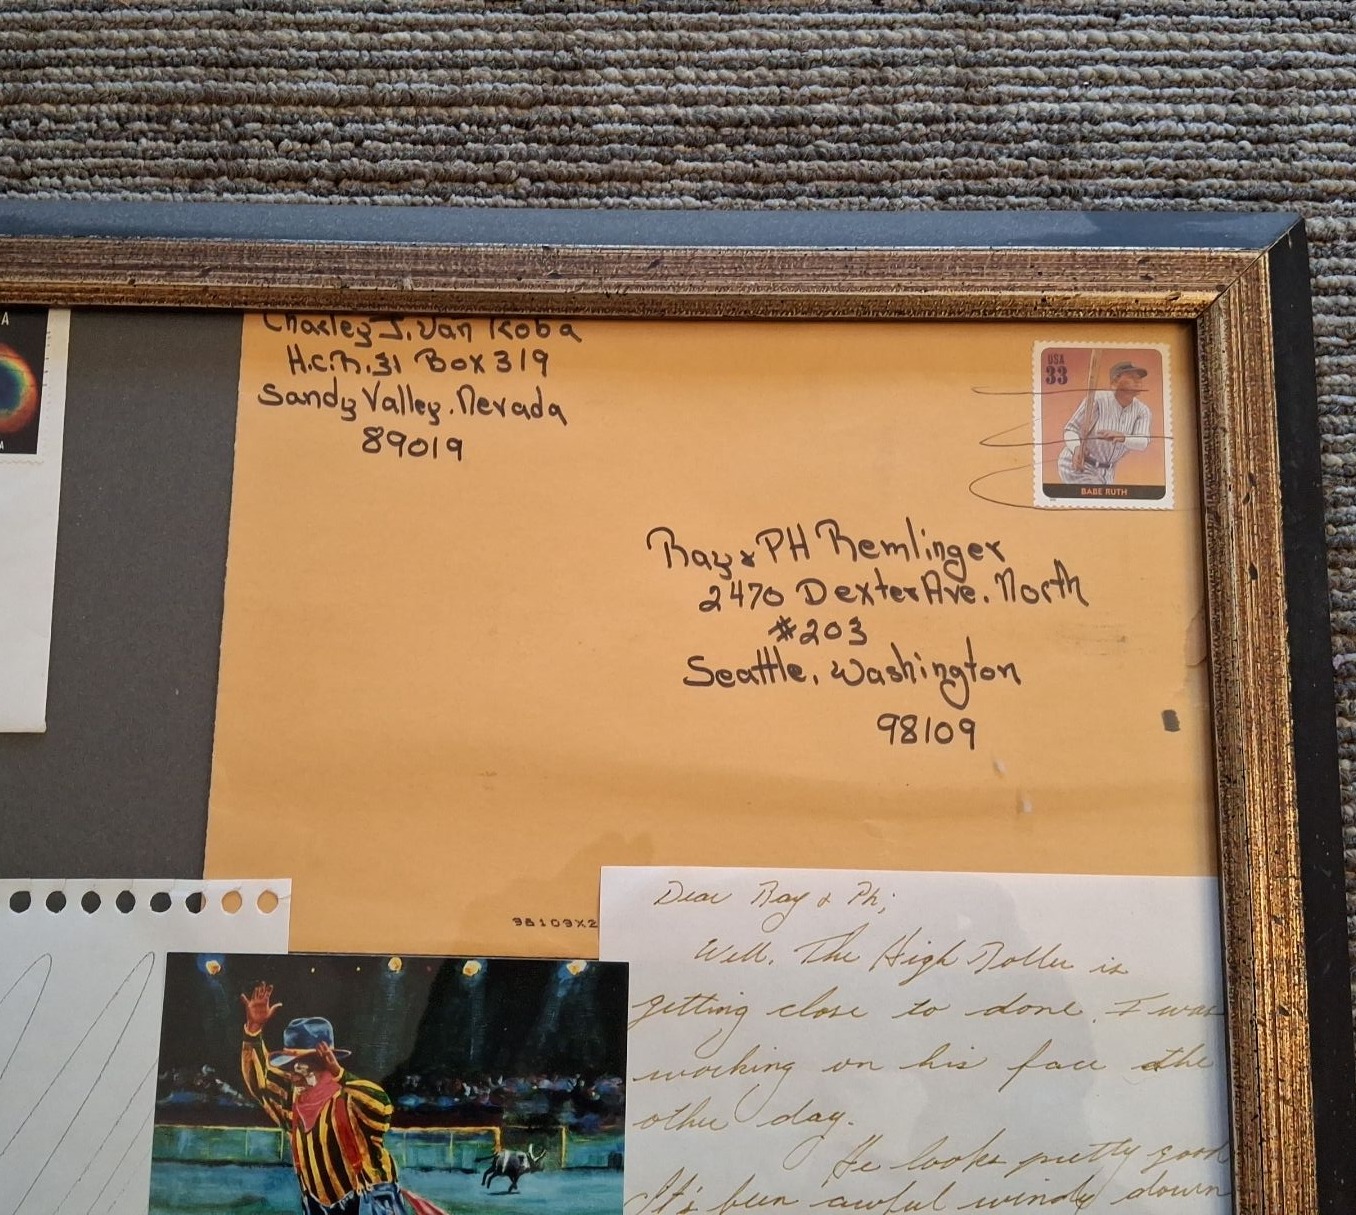 Charley J. Van Koba
H.C.R. 31 Box 319
Sandy Valley. Nevada
89019
USA
33
BABE RUTH
Ray & PH Remlinger
2470 Dexter Ave. North
#203
Seattle, Washington
98109
98109X2
A
A
Dear Ray & Ph;
Well. The High Roller is
getting close to done. I was
working on his face the
other day.
He looks pretty good
It's been awful windy down